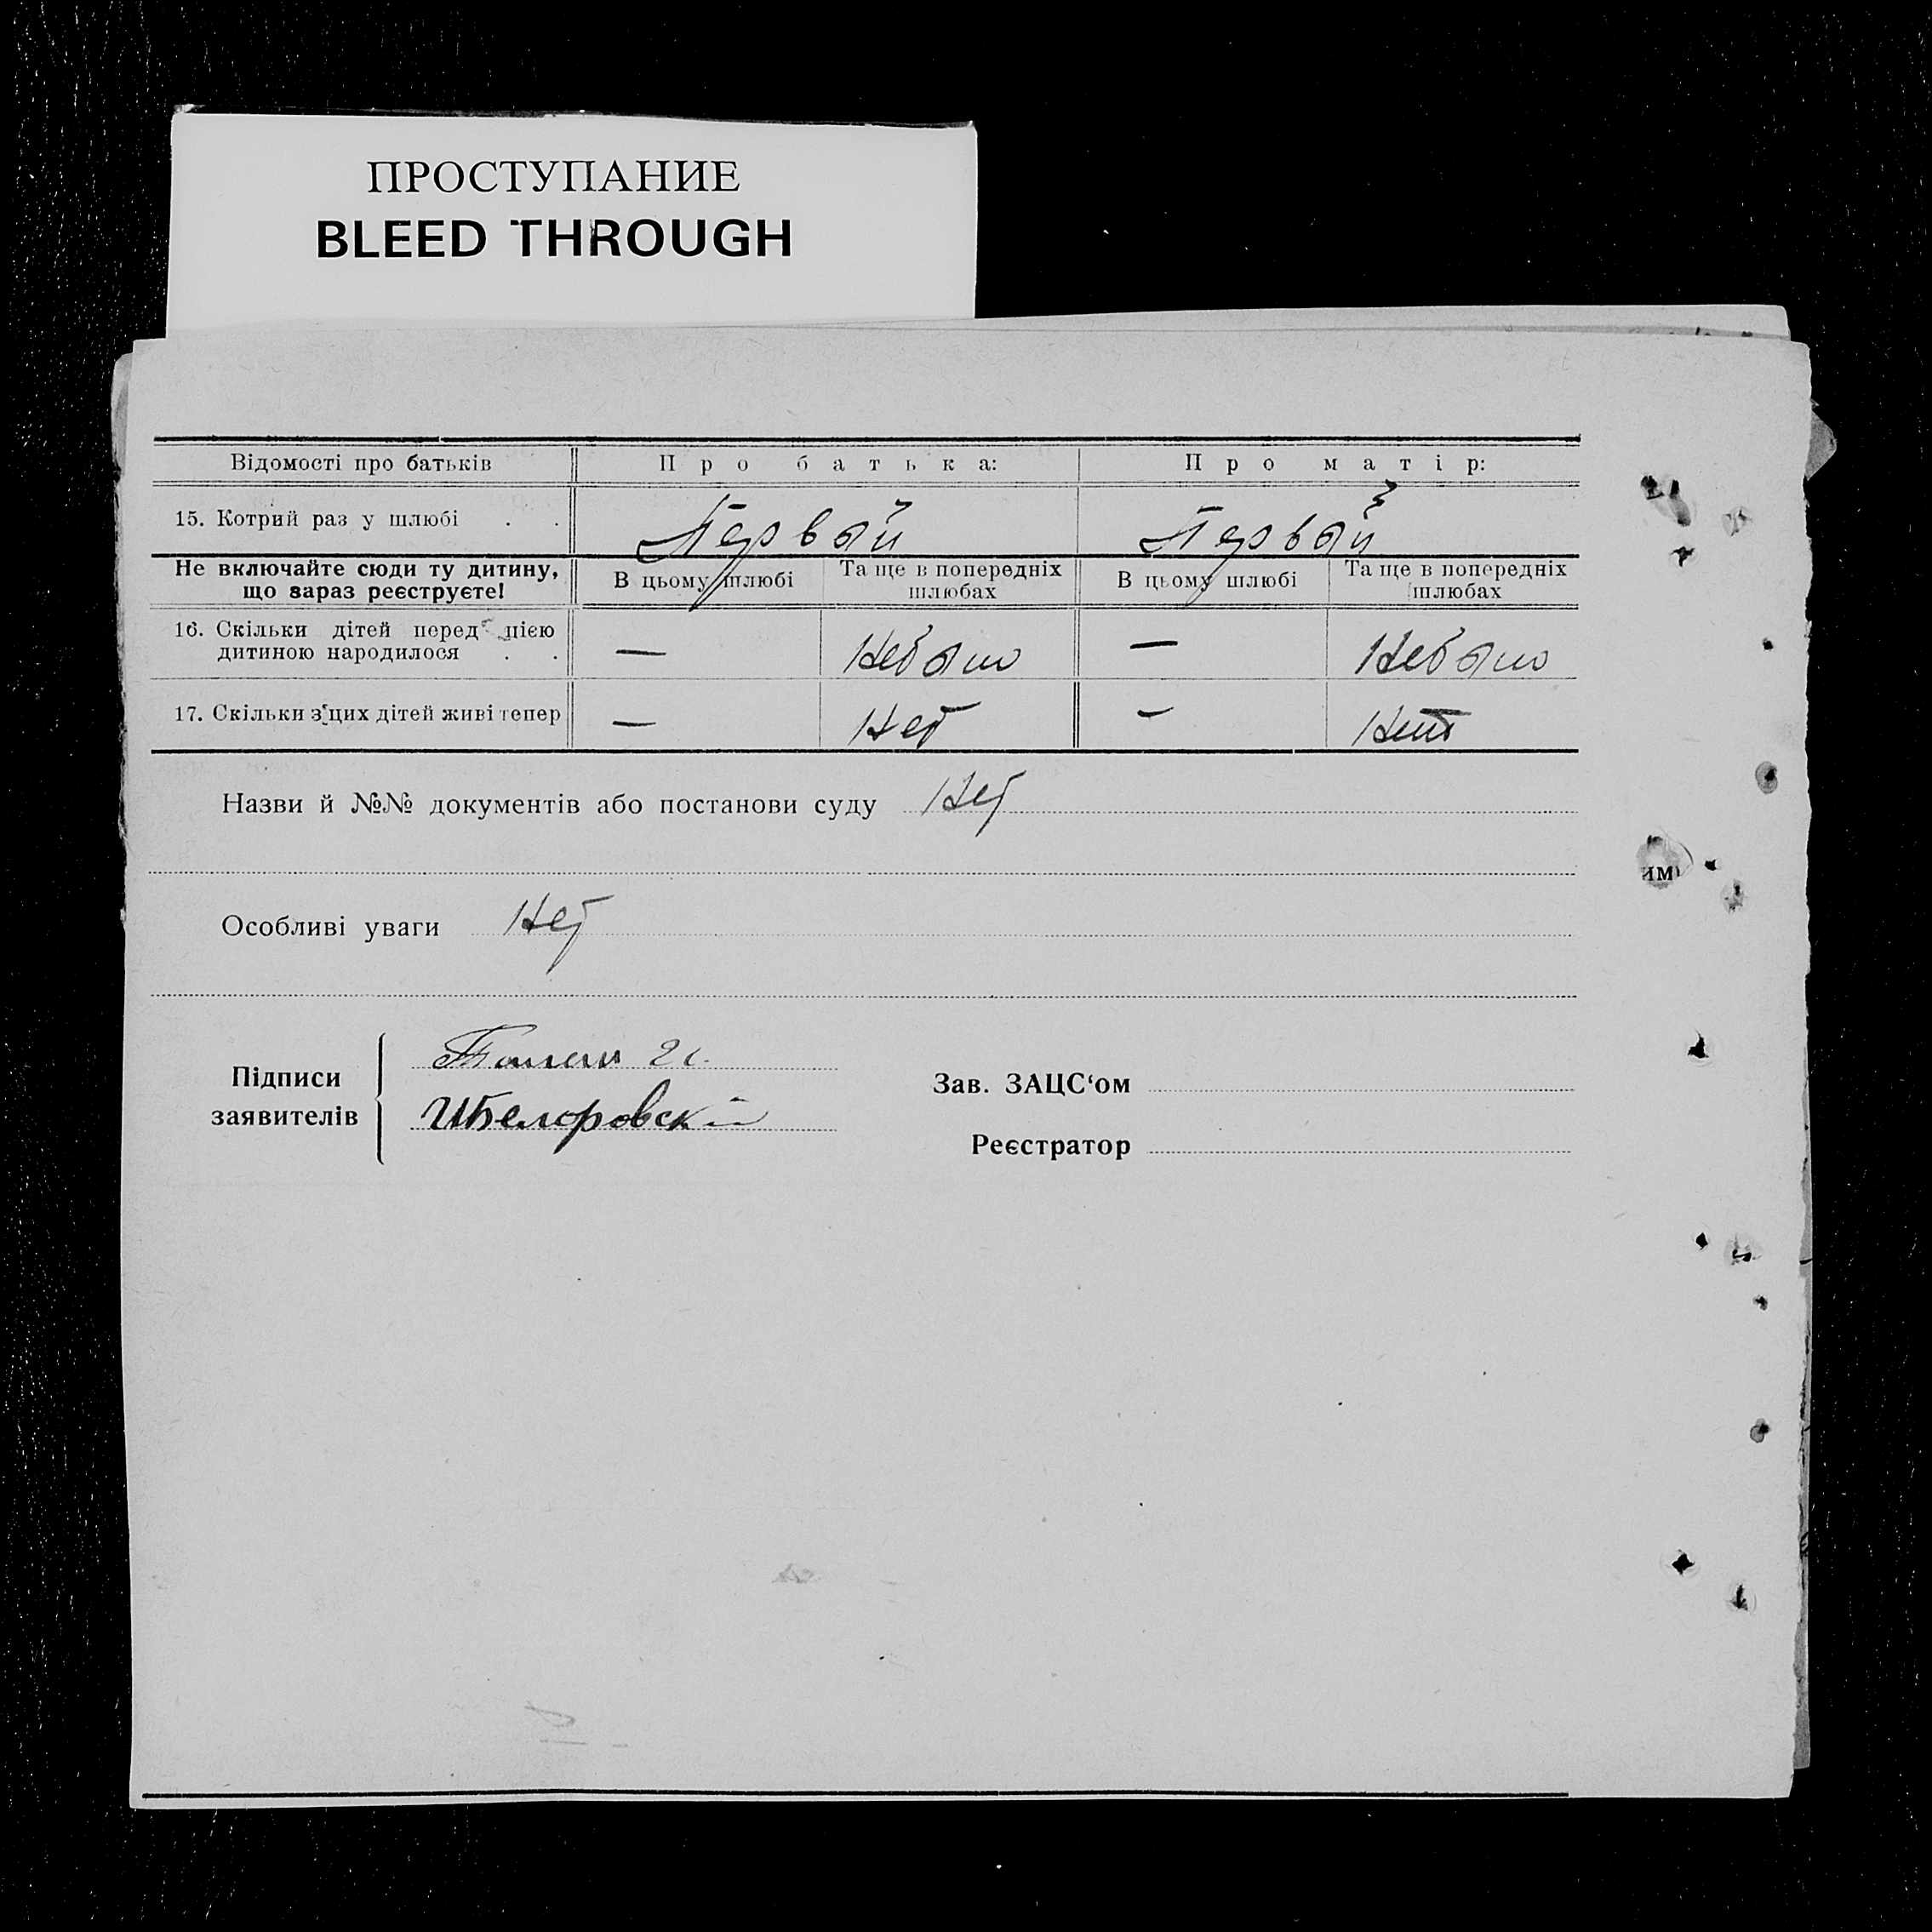 ПРОСТУПАНИЕ
BLEED THROUGH
Відомості про батьків Про батька: Про матір:
15. Котрий раз у шлюбі . . Первый Первый
Не включайте сюди ту дитину, що зараз реєструєте! В цьому шлюбі Та ще в попередніх шлюбах В цьому шлюбі Та ще в попередніх шлюбах
16. Скільки дітей перед цією
дитиною народилося . . — Небыло — Небыло
17. Скільки з цих дітей живі тепер — Нет — Нет
Назви й №№ документів або постанови суду Нет
Особливі уваги Нет
Підписи
заявителів
Зав. ЗАЦС'ом
Реєстратор
им